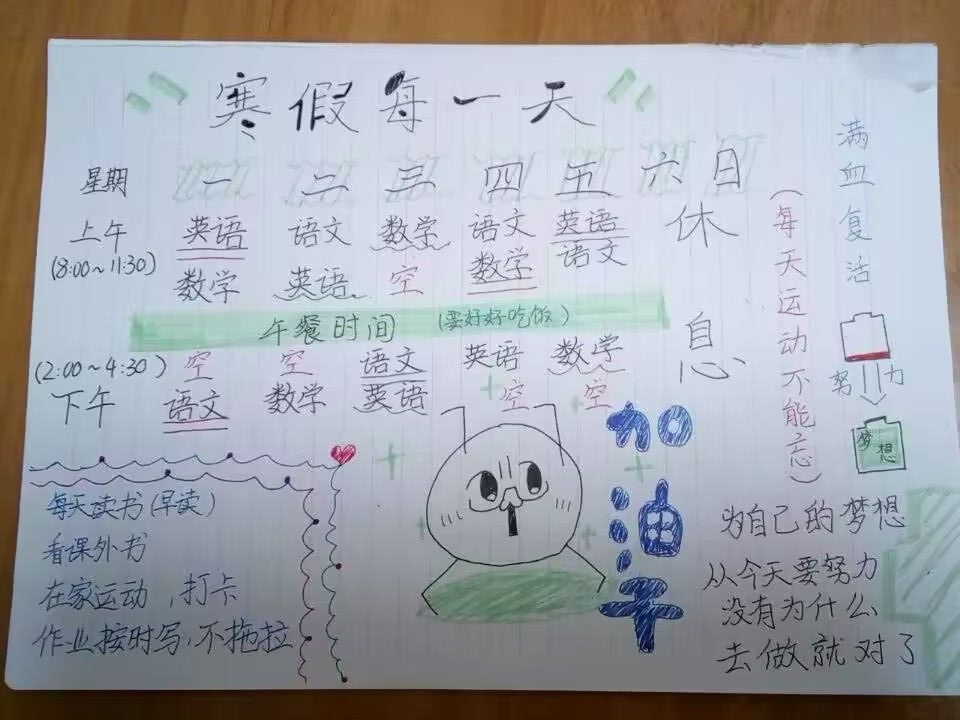 寒假每一天
星期 一 二 三 四 五 六 日
上午 英语 语文 数学 语文 英语 休
(8:00~11:30) 数学 英语 空 数学 语文
午餐时间 (要好好吃饭)
息
(2:00~4:30) 空 空 语文 英语 数学
下午 语文 数学 英语 空 空
(每天运动不能忘)
满血复活
努力
梦想
加油干
每天读书(早读)
看课外书
在家运动,打卡
作业按时写,不拖拉
为自己的梦想
从今天要努力
没有为什么
去做就对了